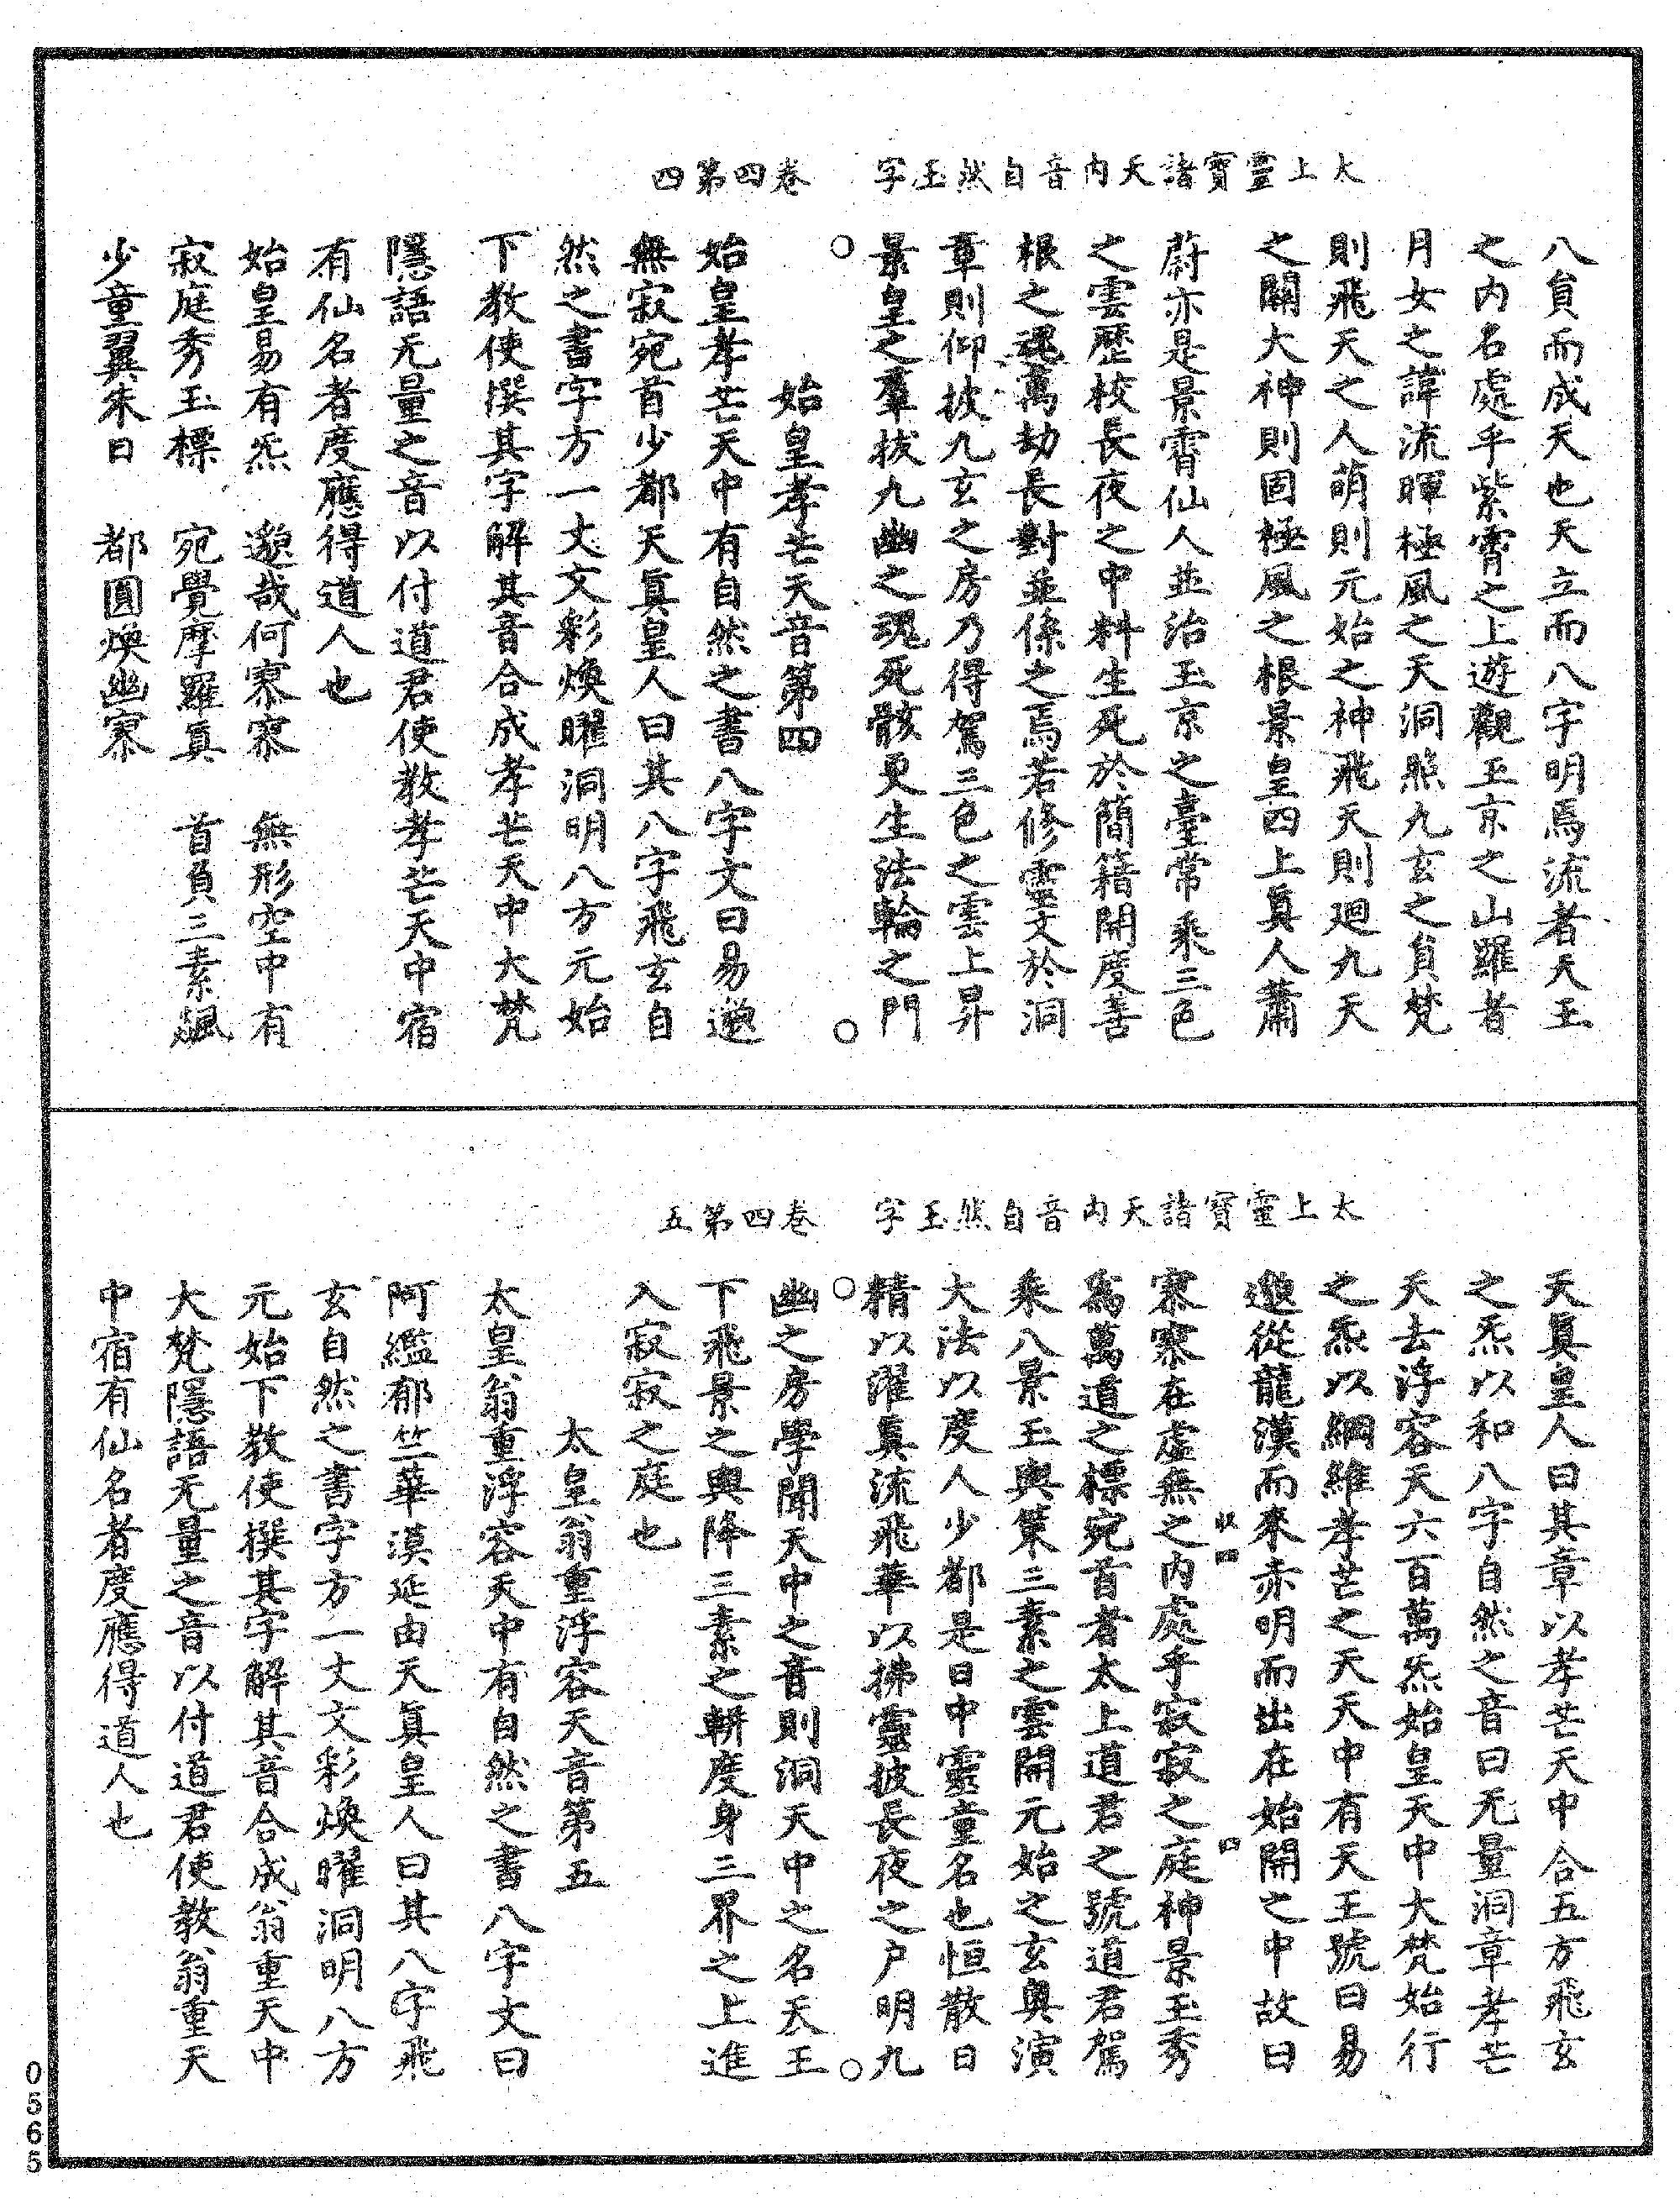 太上靈寶諸天內音自然玉字 卷四第四
八貟而成天也天立而八字明焉流者天王
之内名處乎紫霄之上遊觀玉京之山羅者
月女之諱流暉極風之天洞照九玄之貟梵
則飛天之人萌則元始之神飛天則廻九天
之關大神則固極風之根景皇四上眞人蕭
蔚亦是景霄仙人並治玉京之臺常乘三色
之雲歷校長夜之中料生死於簡籍開度善
根之魂萬劫長對並係之焉若修靈文於洞
章則仰披九玄之房乃得駕三色之雲上昇
景皇之羣拔九幽之魂死骸更生法輪之門
始皇孝芒天音第四
始皇孝芒天中有自然之書八字文曰易邈
無寂宛首少都天眞皇人曰其八字飛玄自
然之書字方一丈文彩煥曜洞明八方元始
下教使撰其字解其音合成孝芒天中大梵
隱語无量之音以付道君使教孝芒天中宿
有仙名者度應得道人也
始皇易有炁 邈哉何寥寥 無形空中有
寂庭秀玉標 宛覺摩羅眞 首負三素飆
少童翼朱日 都圓煥幽寥
太上靈寶諸天內音自然玉字 卷四第五
天眞皇人曰其章以孝芒天中合五方飛玄
之炁以和八字自然之音曰无量洞章孝芒
天去浮容天六百萬炁始皇天中大梵始行
之炁以綱維孝芒之天天中有天王號曰易
邈從龍漢而來赤明而出在始開之中故曰
寥寥在虛無之内處乎寂寂之庭神景玉秀
爲萬道之標宛首者太上道君之號道君駕
乘八景玉輿策三素之雲開元始之玄奥演
大法以度人少都是日中靈童名也恒散日
精以濯眞流飛華以拂靈披長夜之户明九
幽之房學聞天中之音則洞天中之名天王
下飛景之輿降三素之軿度身三界之上進
入寂寂之庭也
太皇翁重浮容天音第五
太皇翁重浮容天中有自然之書八字文曰
阿繿郁竺華漠延由天眞皇人曰其八字飛
玄自然之書字方一丈文彩煥曜洞明八方
元始下教使撰其字解其音合成翁重天中
大梵隱語无量之音以付道君使教翁重天
中宿有仙名者度應得道人也
0565